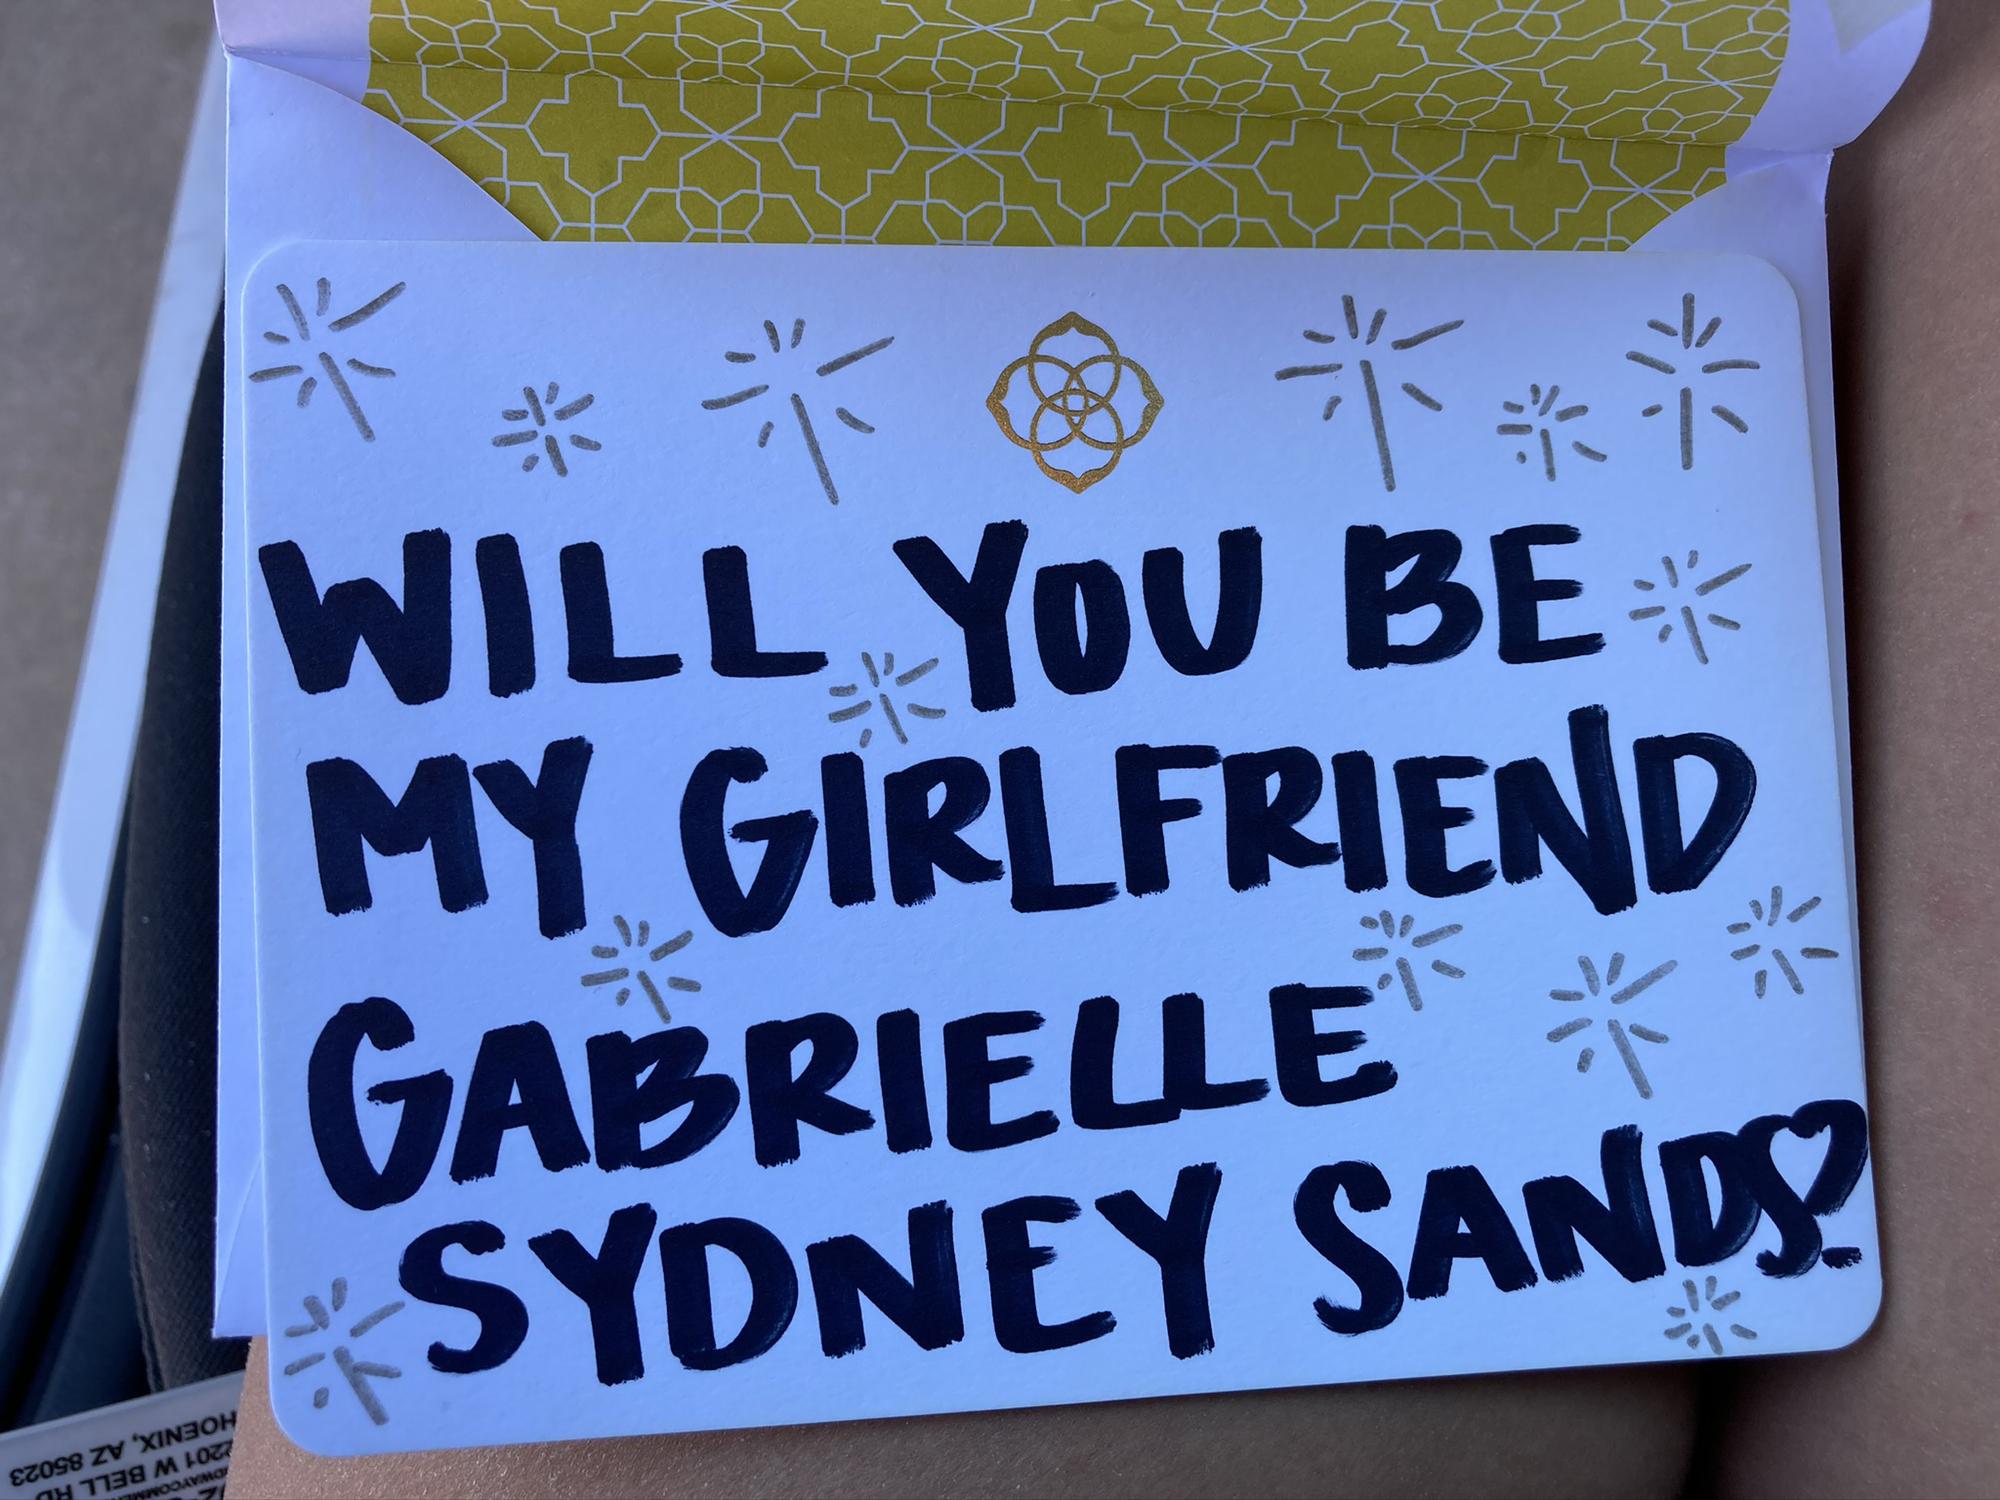 WILL YOU BE
MY GIRLFRIEND
GABRIELLE
SYDNEY SANDS?
2201 W BELL RD
PHOENIX, AZ 85023